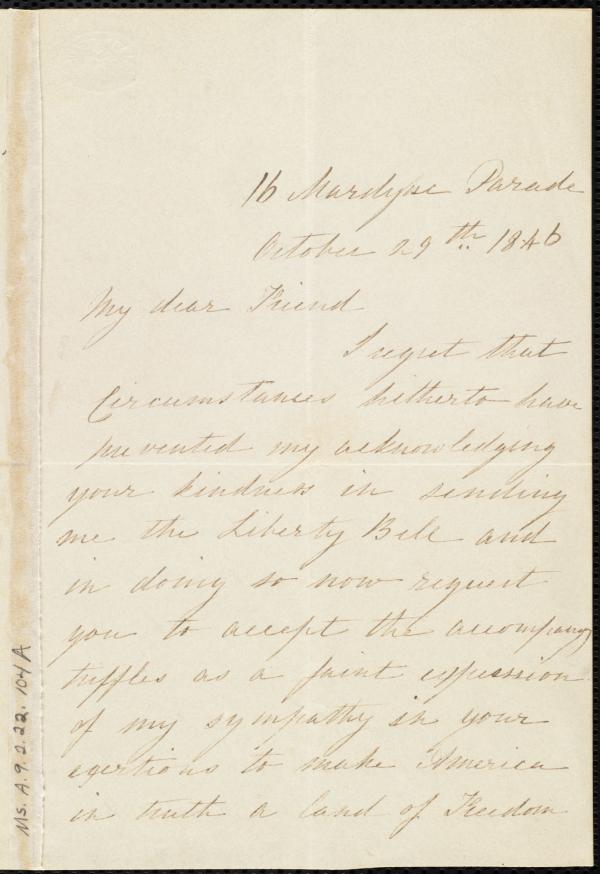 16 Mardyke Parade
October 29th 1846
My dear Friend
I regret that
Circumstances hitherto have
prevented my acknowledging
your kindness in sending
me the Liberty Bell and
in doing so now request
you to accept the accompanyg
triffles as a faint expression
of my sympathy in your
exertions to make America
in truth a land of Freedom
Ms. A. 9. 2. 22. 104A